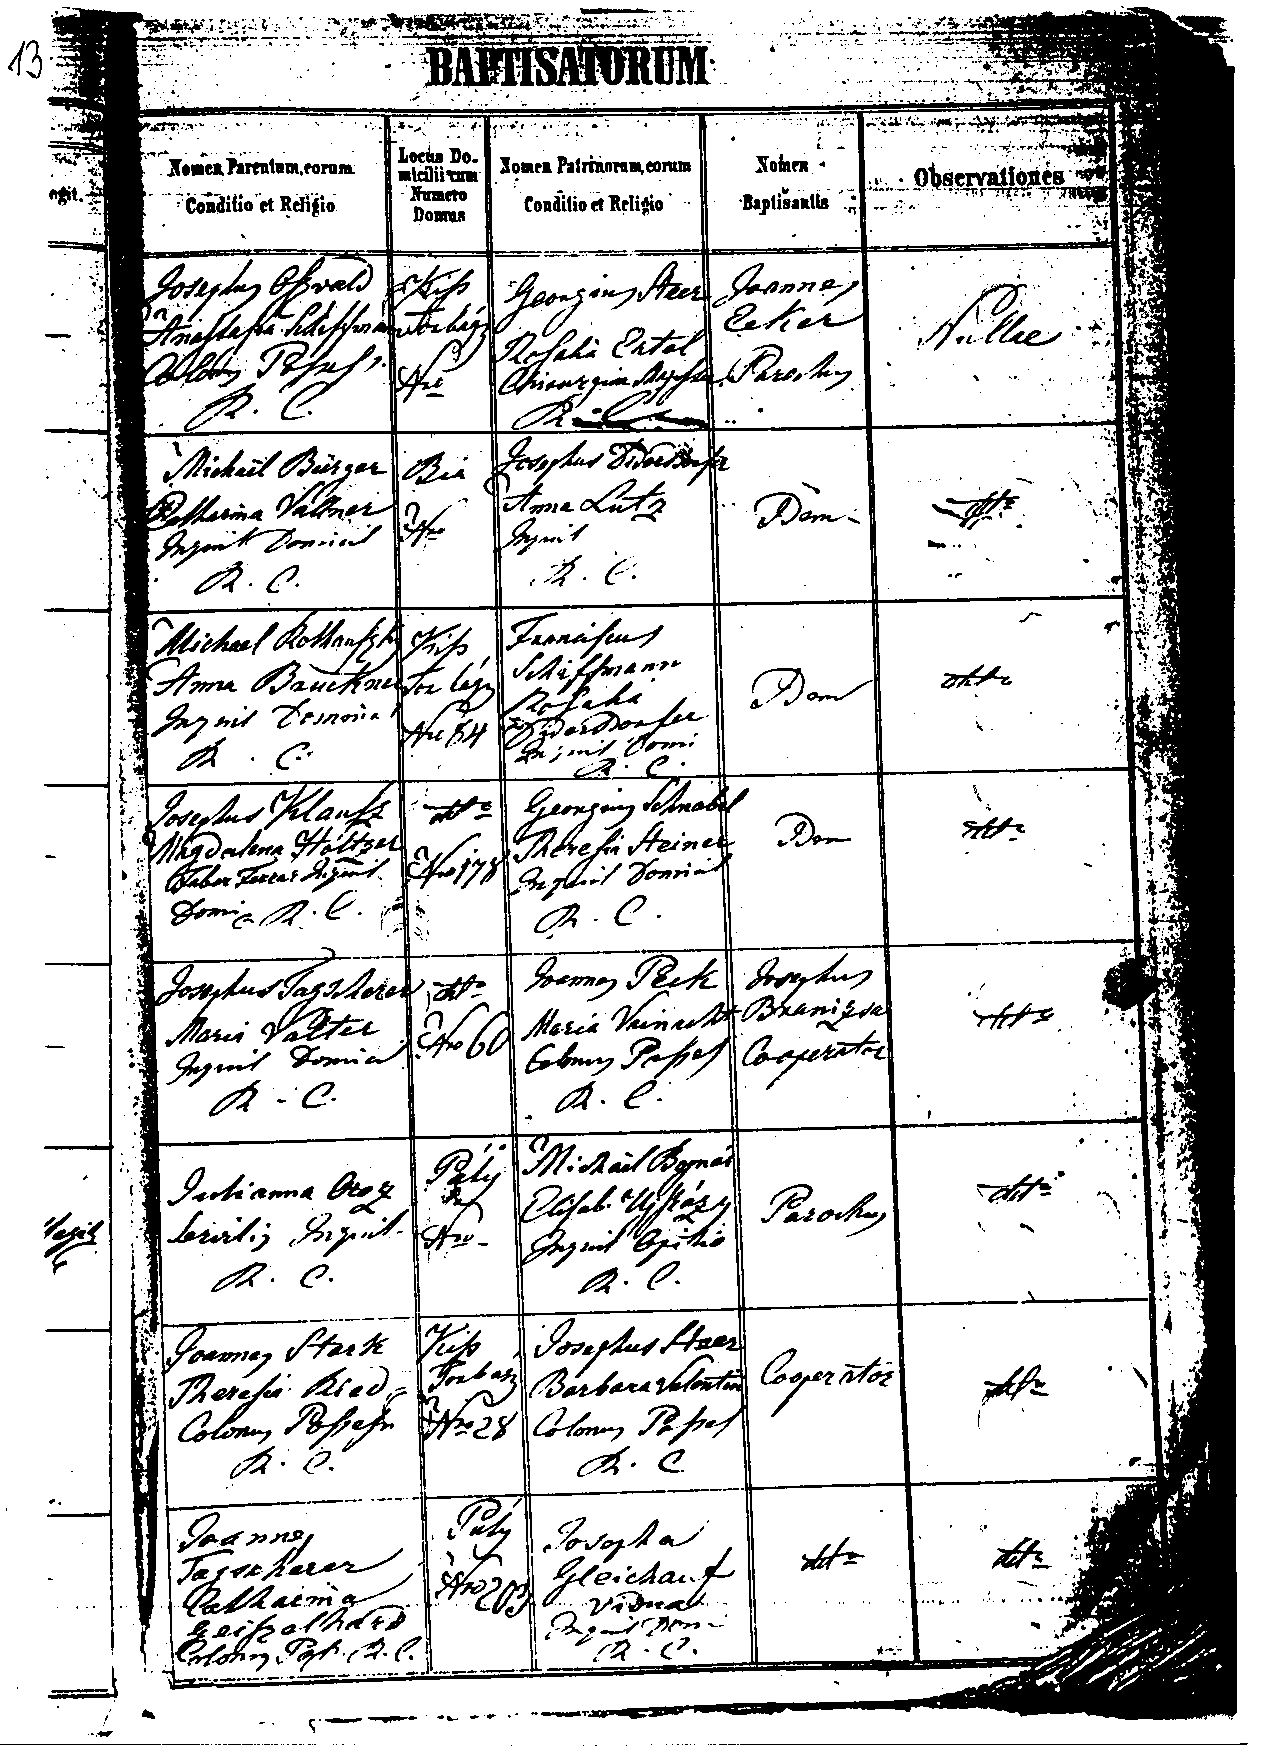 13
BAPTISATORUM
Nomen Parentum, eorum
Conditio et Religio
Locus Do-
micilii cum
Numero
Domus
Nomen Patrinorum, eorum
Conditio et Religio
Nomen
Baptisantis
Observationes
ogit.
Josephus Oswald
Anastasia Schiffman
R. C.
Kiss
Torbágy
Nro
Georgius Steer
Rosalia Ertel
R. C.
Joannes
Ecker
Parochus
Nullae
Michaël Bürger
Catharina Valtner
Inquil Domicil
R. C.
Bia
Nro
Josephus
Anna Lutz
Inquil
R. C.
Dem
dtto
Michael
Anna Bauckner
Inquil
R. C.
Kiss
Torbágy
Nro 54
Franciscus
Schiffmann
Rosalia
Inquil Domi
R. C.
Dem
dtto
Josephus Klausz
Magdalena Holtzer
Faber Inquil
Domi R. C.
dtto
Nro 178
Georgius Schnabel
Theresia Steiner
Inquil Domicil
R. C.
Dem
dtto
Josephus Tagscherer
Maria Valter
Inquil Domicil
R. C.
dtto
Nro 60
Joannes Peck
Maria Vainacht
Colonus Possess
R. C.
Josephus
Cooperator
dtto
Julianna Orosz
Inquil
R. C.
Páty
Nro -
Michaël
Elisab. Ujházy
Inquil Opilio
R. C.
Parochus
dtto
Joannes Stark
Theresia Ried
Colonus Possess
R. C.
Kiss
Torbágy
Nro 28
Josephus Steer
Barbara Valentin
Colonus Possess
R. C.
Cooperator
dtto
Joannes
Tagscherer
Catharina
Geiszelhard
Colonus Poss. R. C.
Páty
Nro 203
Josepha
Gleichauf
vidua
Inquil Dom
R. C.
dtto
dtto